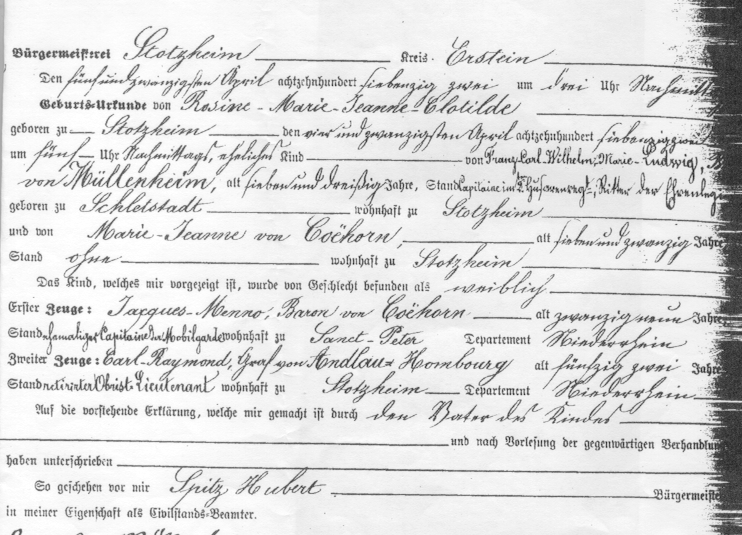 Bürgermeisterei Stotzheim Kreis Erstein
Den fünfundzwanzigsten April achtzehnhundert siebenzig zwei um drei Uhr Nachmitt
Geburts-Urkunde von Rosine-Marie-Jeanne-Clotilde
geboren zu Stotzheim den vier und zwanzigsten April achtzehnhundert siebenzig zwei
um fünf Uhr Nachmittags, eheliches Kind von Franz Carl-Wilhelm-Marie-Ludwig,
von Müllenheim, alt sieben und dreißig Jahre, Stand Capitaine im Husarenregt., Ritter der Ehrenlegi
geboren zu Schletstadt wohnhaft zu Stotzheim
und von Marie-Jeanne von Coëhorn, alt sieben und zwanzig Jahre
Stand ohne wohnhaft zu Stotzheim
Das Kind, welches mir vorgezeigt ist, wurde von Geschlecht befunden als weiblich
Erster Zeuge: Jacques-Menno, Baron von Coëhorn alt zwanzig neun Jahre
Stand ehemaliger Capitaine der Mobilgarde wohnhaft zu Sanct-Peter Departement Niederrhein
Zweiter Zeuge: Carl-Raymond, Graf von Andlau-Hombourg alt fünfzig zwei Jahre
Stand retireter Obrist-Lieutenant wohnhaft zu Stotzheim Departement Niederrhein
Auf die vorstehende Erklärung, welche mir gemacht ist durch den Vater des Kindes
und nach Vorlesung der gegenwärtigen Verhandlun
haben unterschrieben
So geschehen vor mir Spitz Hubert Bürgermeiste
in meiner Eigenschaft als Civilstands-Beamter.